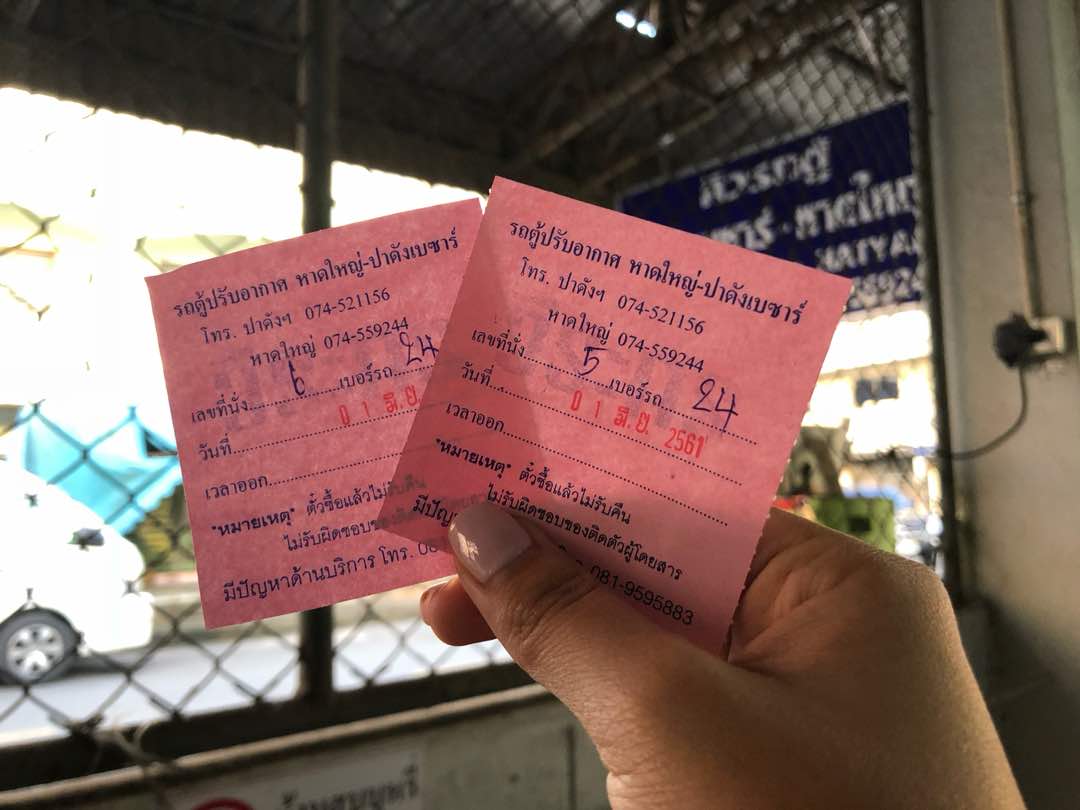 รถตู้ปรับอากาศ หาดใหญ่-ปาดังเบซาร์
โทร. ปาดังฯ 074-521156
หาดใหญ่ 074-559244
เลขที่นั่ง 6 เบอร์รถ 24
วันที่ 01 มิ.ย.
เวลาออก
"หมายเหตุ" ตั๋วซื้อแล้วไม่รับคืน
ไม่รับผิดชอบของ
มีปัญหาด้านบริการ โทร. 08
รถตู้ปรับอากาศ หาดใหญ่-ปาดังเบซาร์
โทร. ปาดังฯ 074-521156
หาดใหญ่ 074-559244
เลขที่นั่ง 5 เบอร์รถ 24
วันที่ 01 มิ.ย. 2561
เวลาออก
"หมายเหตุ" ตั๋วซื้อแล้วไม่รับคืน
ไม่รับผิดชอบของติดตัวผู้โดยสาร
มีปัญ 081-9595883
คิวรถตู้
ซาร์ - หาดใหญ่
HATYA